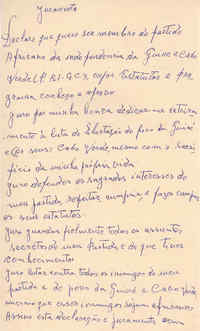 Juramento
Declaro que quero ser membro do partido
Africano da independência da Guiné e Cabo
Verde (P.A.I.G.C.) cujos Estatutos e pro
grama conheço e aprovo
Juro por minha honra dedicar-me inteira
mente à luta de libertação do povo da Guiné
e das ilhas Cabo Verde, mesmo com o sacri
fício da minha própria vida
Juro defender os sagrados interesses do
meu partido, respeitar, cumprir e fazer cumprir
os seus estatutos.
Juro guardar fielmente todos os assuntos
secretos do meu Partido e de que tiver
conhecimento
Juro lutar contra todos os inimigos do meu
partido e do povo da Guiné e Cabo Verde
mesmo que esses inimigos sejam africanos.
Assino esta declaração e juramento sem